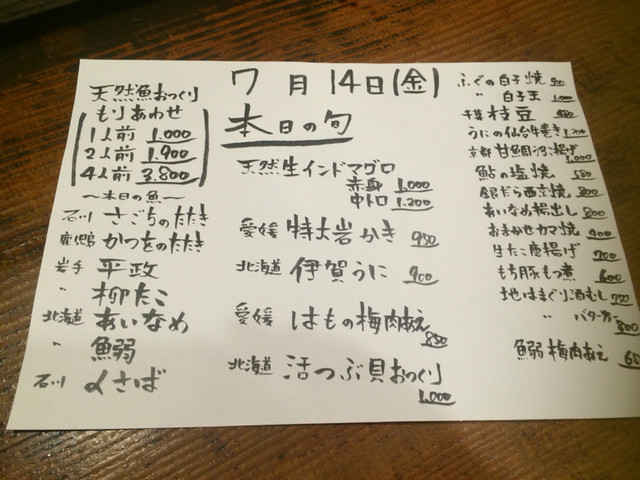 天然魚おつくり
もりあわせ
1人前 1.000
2人前 1.900
4人前 3.800
〜本日の魚〜
石川 さごちのたたき
鹿児島 かつをのたたき
岩手 平政
〃 柳たこ
北海道 あいなめ
〃 魚弱
石川 〆さば
7月14日(金)
本日の旬
天然生インドマグロ
赤身 1.000
中トロ 1.200
愛媛 特大岩かき 950
北海道 伊賀うに 900
愛媛 はもの梅肉あえ 850
北海道 活つぶ貝おつくり
1.000
ふぐの白子焼 900
〃 白子玉 1.000
千葉 枝豆 480
うにの仙台牛巻き 1.200
京都 甘鯛 揚げ
1.000
鮎の塩焼 580
銀だら西京焼 800
あいなめ揚出し 800
おまかせカマ焼 900
生たこ唐揚げ 700
もち豚もつ煮 600
地はまぐり酒むし 750
〃 バター 800
魚弱 梅肉あえ